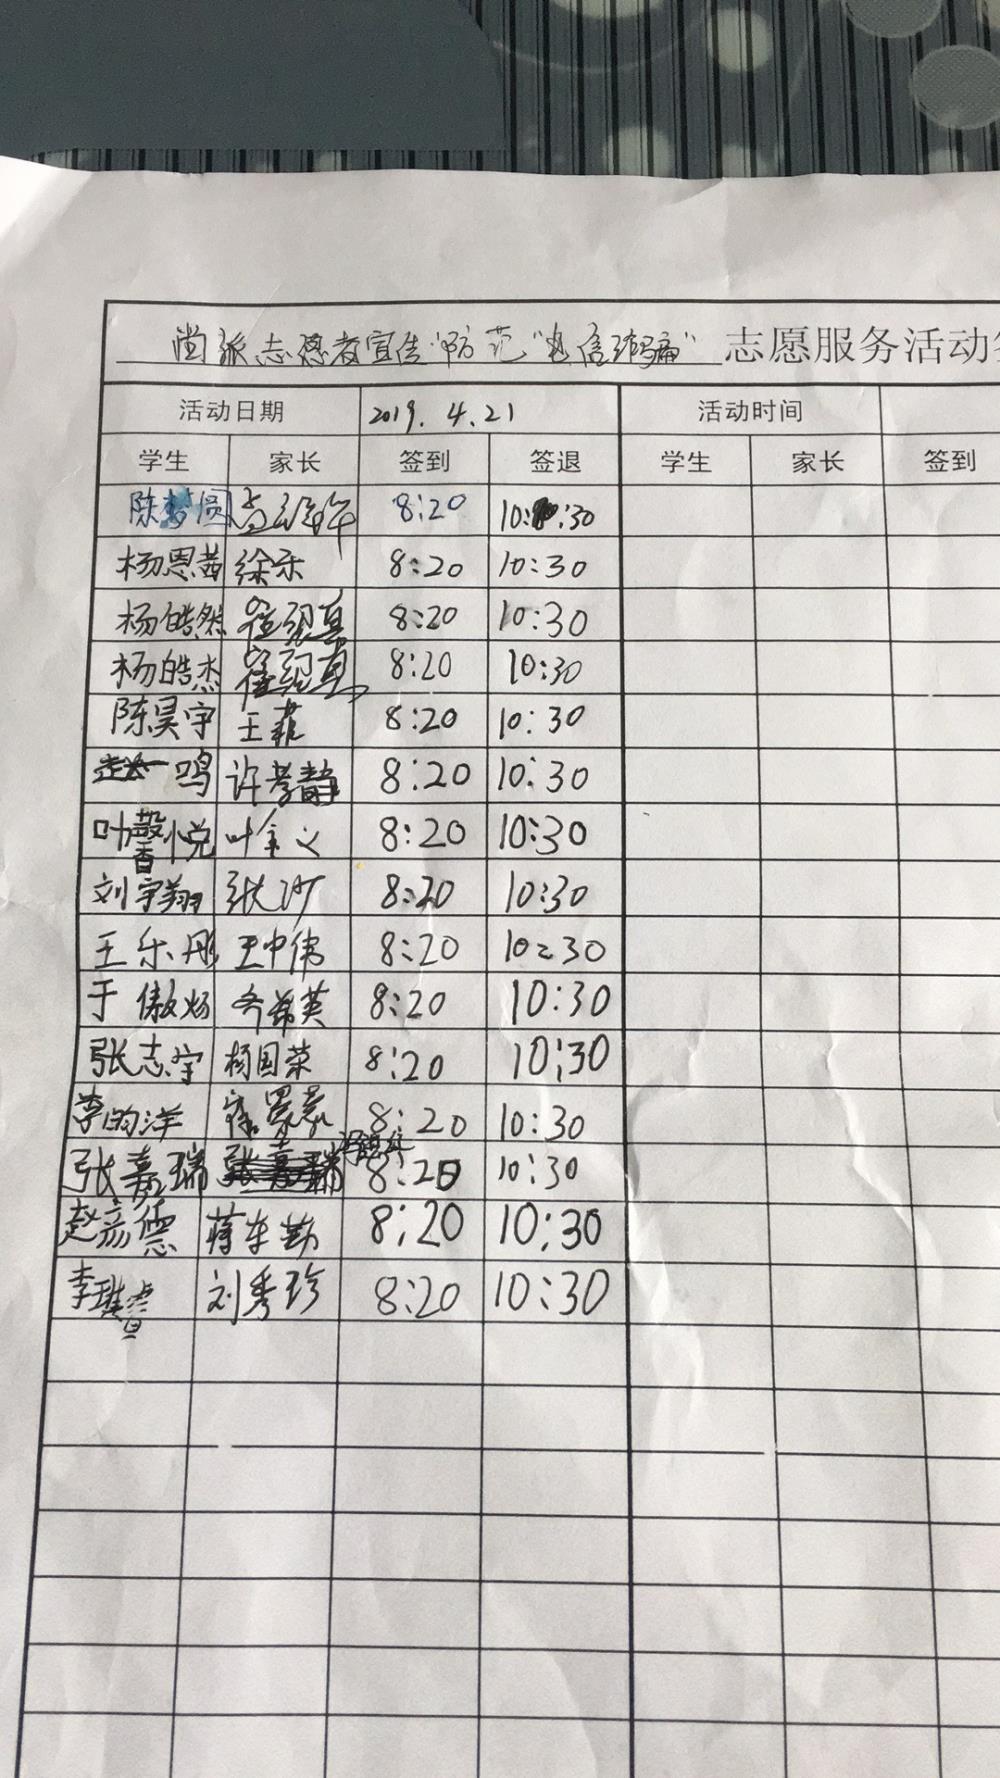 志愿者宣传"防范"电信诈骗" 志愿服务活动
活动日期 2019.4.21 活动时间
学生 家长 签到 签退 学生 家长 签到
陈梦圆 8:20 10:30
杨恩茜 徐乐 8:20 10:30
杨皓然 8:20 10:30
杨皓杰 8:20 10:30
陈昊宇 王菲 8:20 10:30
赵一鸣 许孝静 8:20 10:30
叶馨悦 叶金义 8:20 10:30
刘宇翔 张沙 8:20 10:30
王乐彤 王中伟 8:20 10:30
于傲炀 齐希英 8:20 10:30
张志宇 杨国荣 8:20 10:30
李昀洋 8:20 10:30
张嘉瑞 8:20 10:30
赵彦德 蒋本勤 8:20 10:30
李璞睿 刘秀珍 8:20 10:30